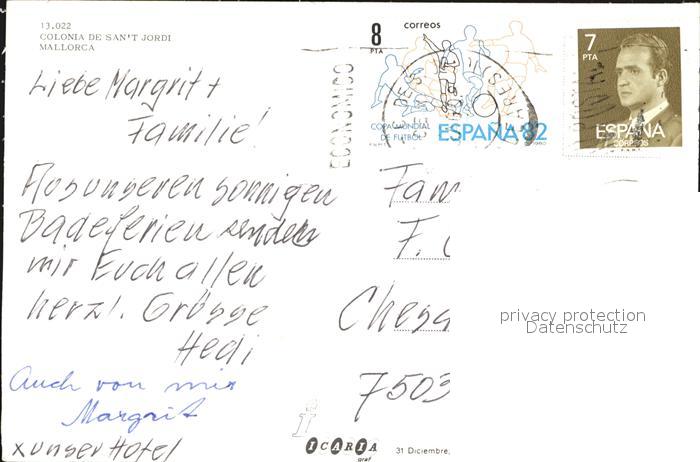 13.022
COLONIA DE SAN'T JORDI
MALLORCA
8
PTA
correos
COPA MUNDIAL
DE FUTBOL
ESPAÑA 82
1980
7
PTA
ESPAÑA
CORREOS
ECONOMICO
Liebe Margrit +
Familie!
Aus unseren sonnigen
Badeferien senden
wir Euch allen
herzl. Grüsse
Hedi
Auch von mir
Margrit
x unser Hotel
Fam
F.
Chesa
7503
privacy protection
Datenschutz
ICARIA
graf
31 Diciembre,